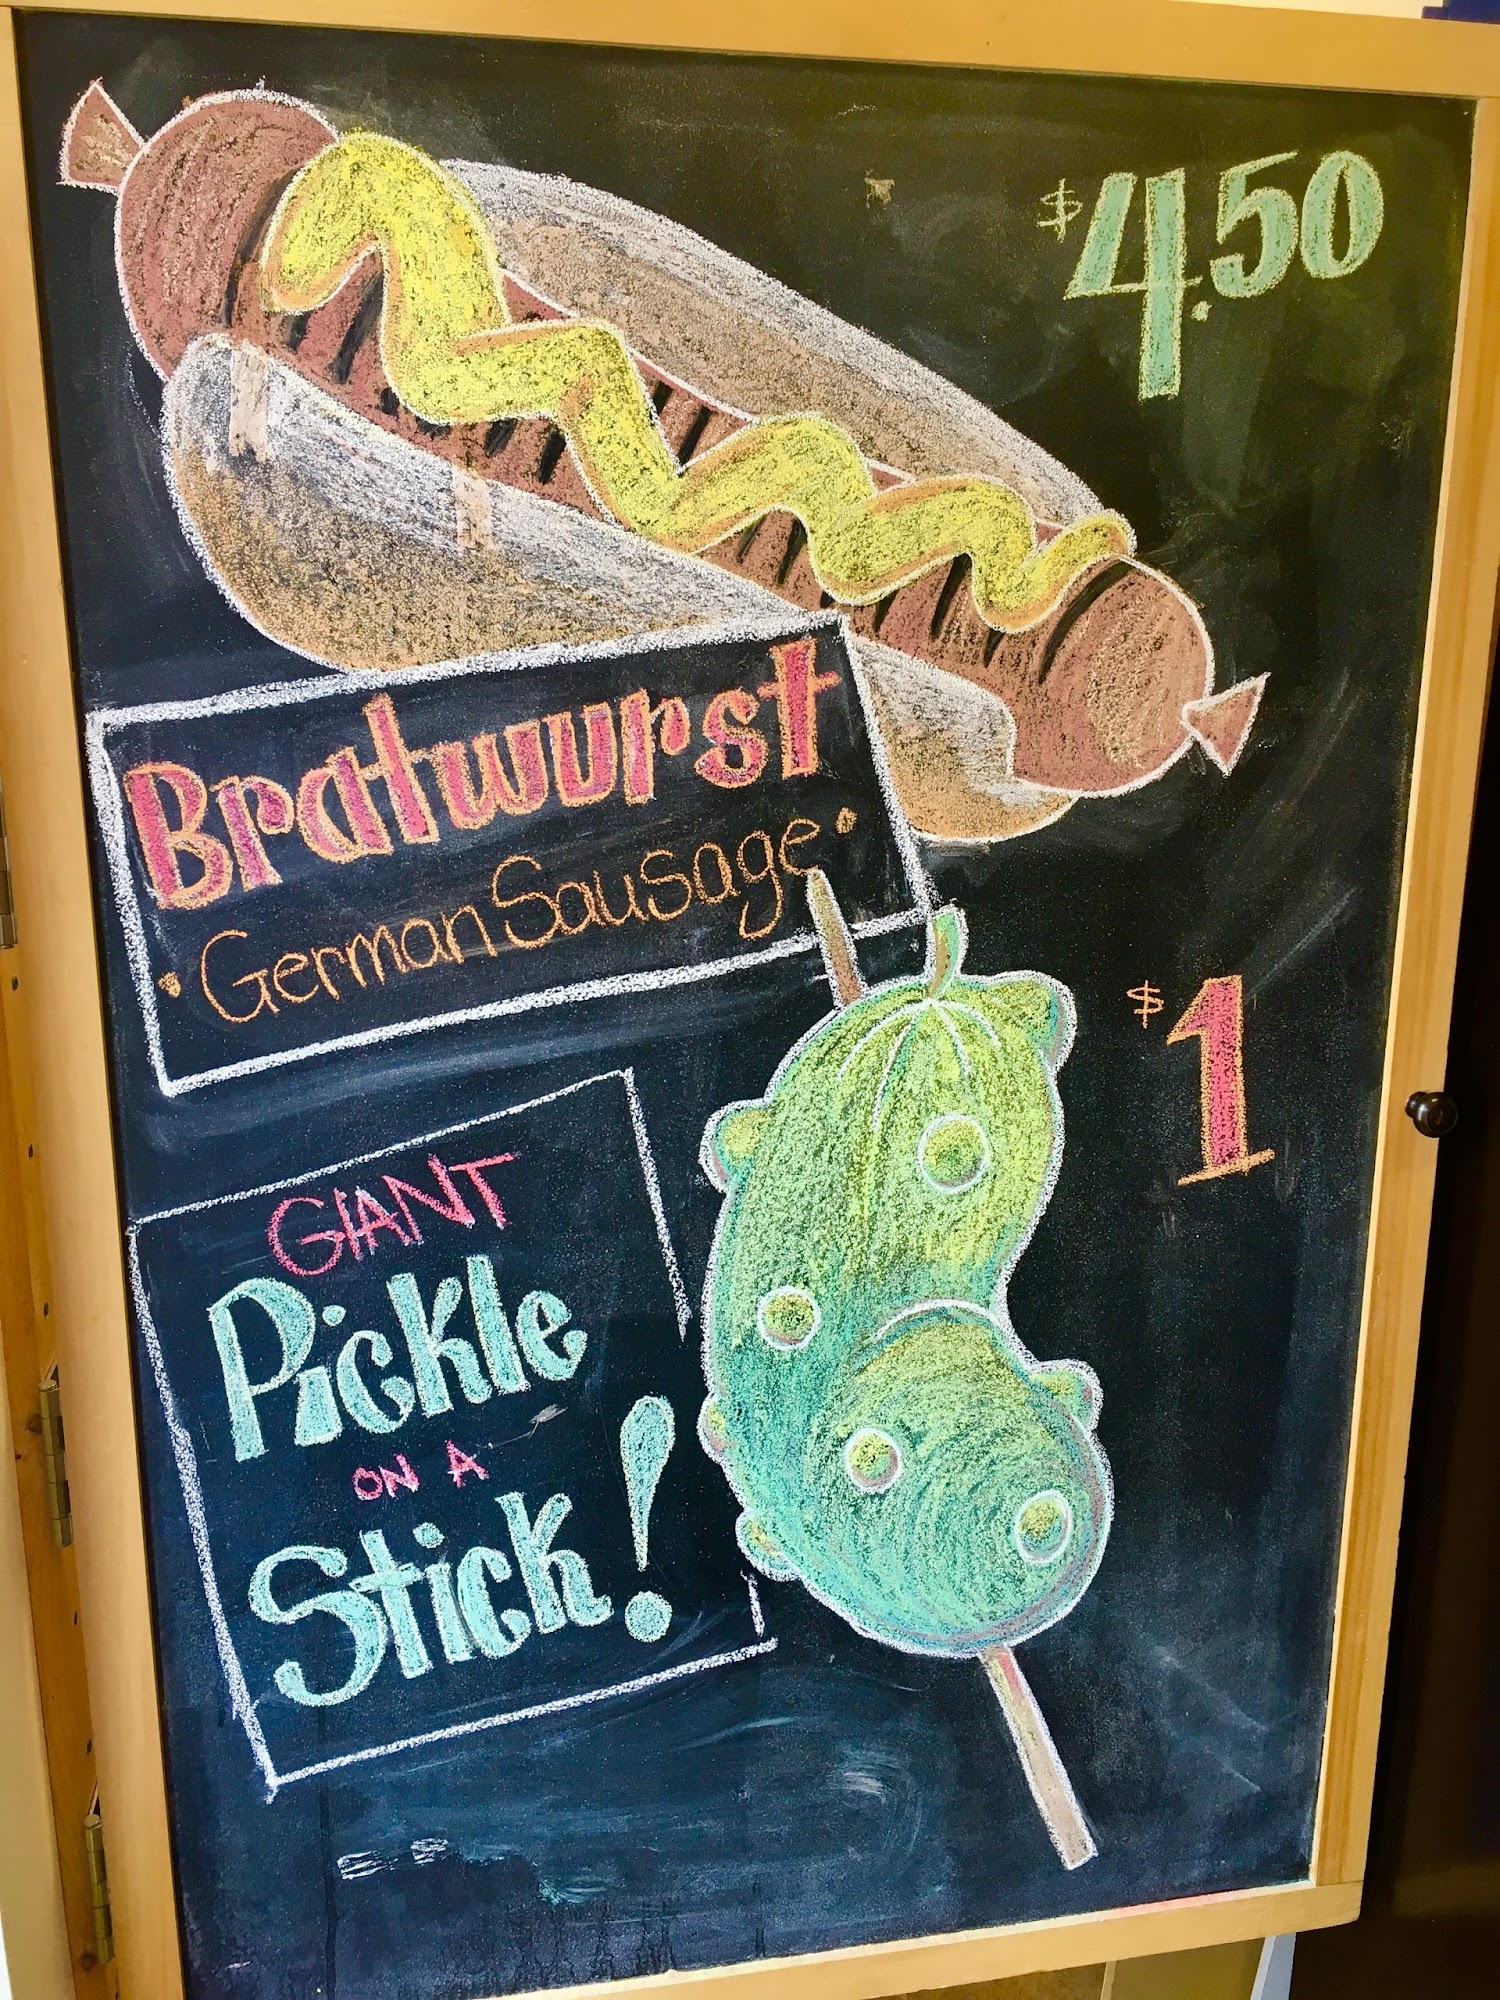 $4.50
Bratwurst
• German Sausage •
$1
GIANT
Pickle
ON A
Stick!